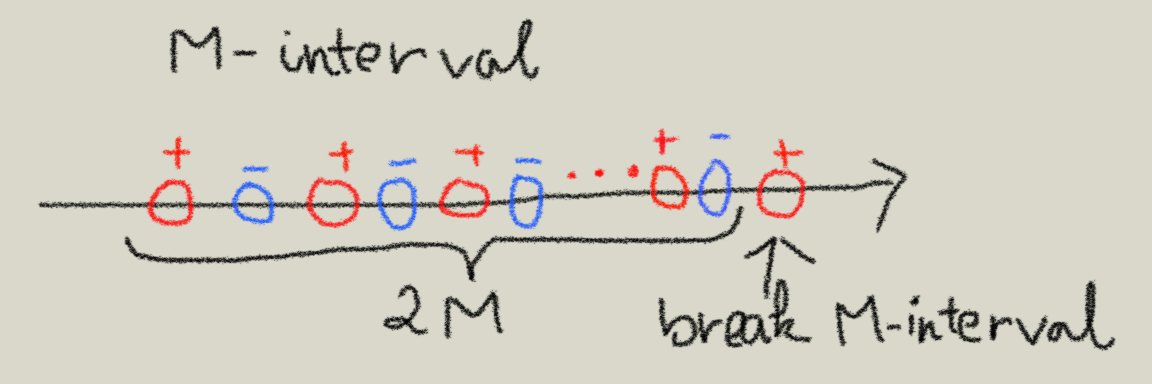 M-interval
+ − + − + − ... + − +
2M
break M-interval